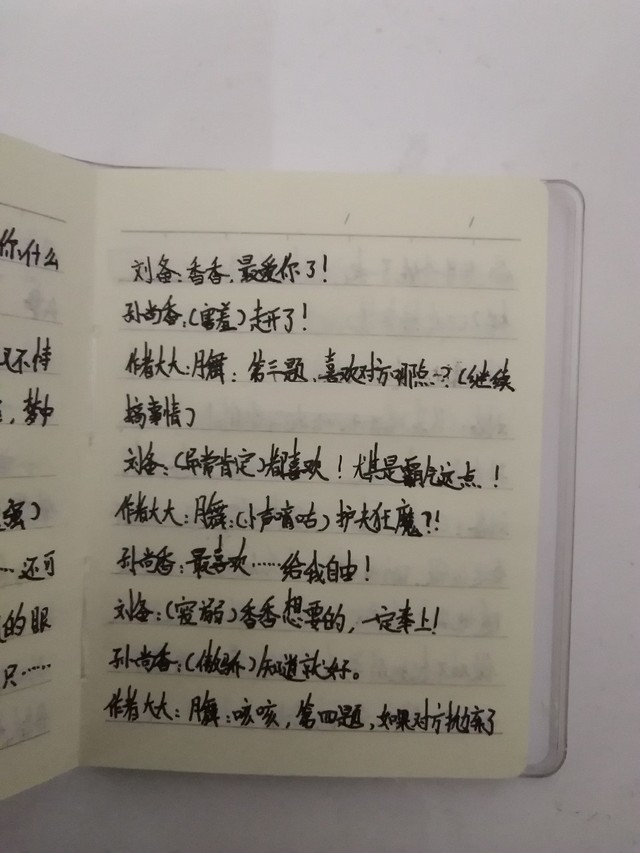 你,什么
又不情
梦中
蜜)
……还可
的眼
只……
刘备:香香,最爱你了!
孙尚香:(害羞)走开了!
作者大大:月舞:第三题,喜欢对方哪点?(继续
搞事情)
刘备:(异常肯定)都喜欢!尤其是霸气这点!
作者大大:月舞:(小声嘀咕)护夫狂魔?!
孙尚香:最喜欢……给我自由!
刘备:(宠溺)香香想要的,一定奉上!
孙尚香:(傲娇)知道就好。
作者大大:月舞:咳咳,第四题,如果对方抛弃了